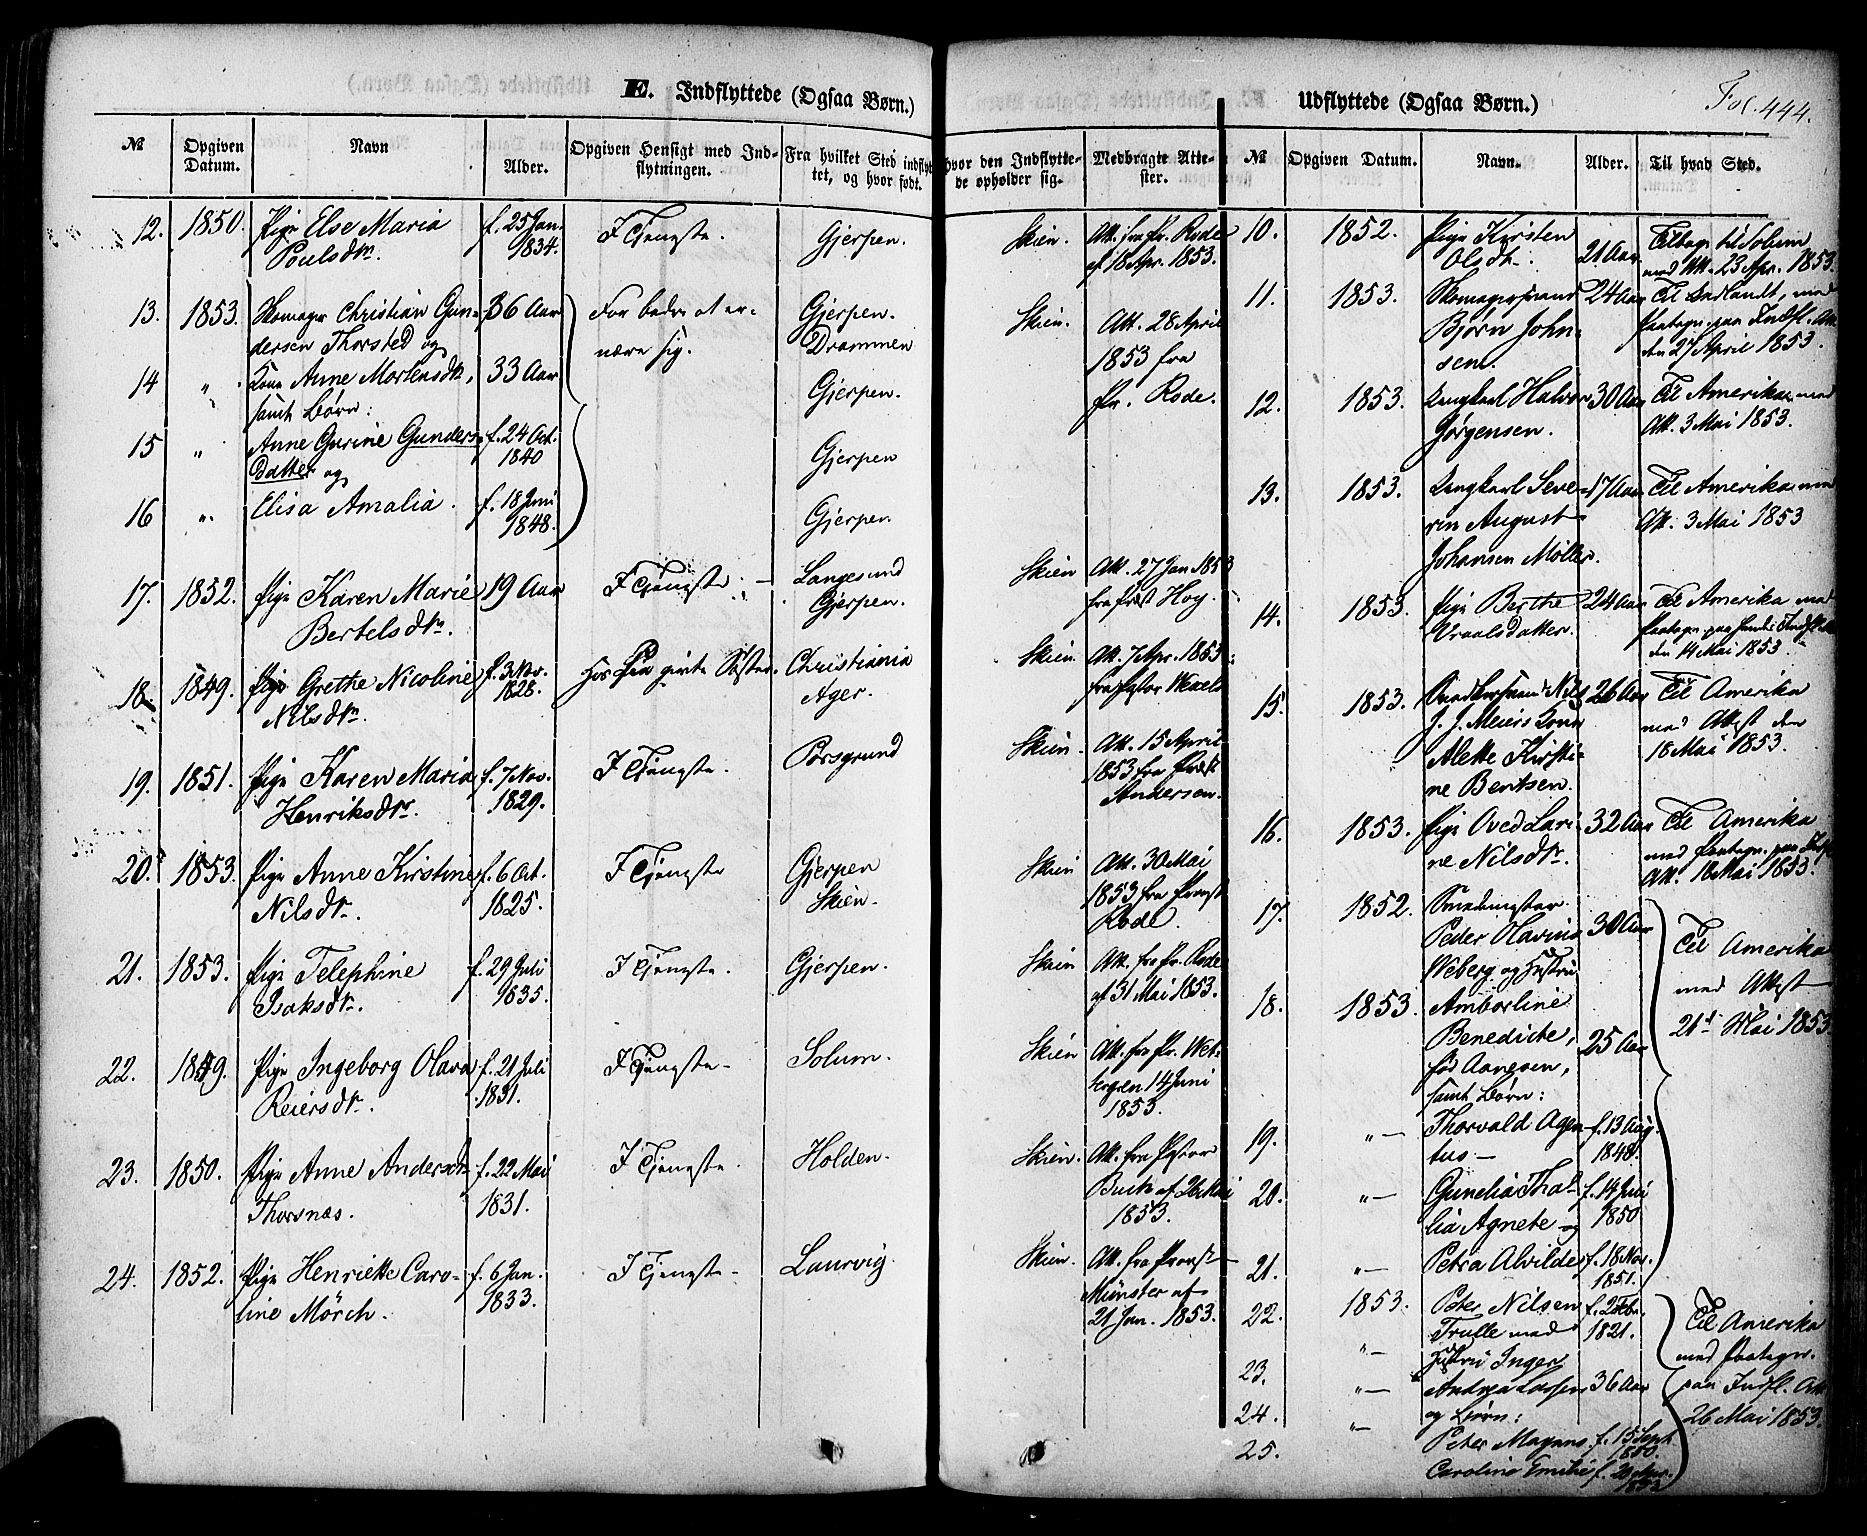 E. Indflyttede (Ogsaa Børn.)
Udflyttede (Ogsaa Børn.)
Fol. 444.
№
Opgiven Datum.
Navn
Alder.
Opgiven Hensigt med Ind-
flytningen.
Fra hvilket Sted indflyt-
tet, og hvor født.
Hvor den Indflytte-
de opholder sig.
Medbragte Atte-
ster.
№
Opgiven Datum.
Navn.
Alder.
Til hvad Sted.
12. 1850. Pige Else Maria f. 25 Jan. I Tjeneste. Gjerpen. Skien. Att. fra Pr. Rode
Poulsdtr. 1834. af 18 Apr. 1853.
13. 1853. Skomager Christian Gun- 36 Aar For bedre at er- Gjerpen. Skien. Att. 28 April
dersen Thorsted og nære sig. Drammen 1853 fra
14 " Kone Anne Mortensdtr, 33 Aar Gjerpen. Pr. Rode.
samt Børn:
15 " Anne Gurine Gunders- f. 24 Oct. Gjerpen
Datter og 1840
16 " Elisa Amalia. f. 18 Juni Gjerpen
1848.
17. 1852. Pige Karen Marie 19 Aar I Tjeneste. Langesund Skien Att. 27 Jan 1853
Bertelsdtr. Gjerpen. fra Præst Hoy.
18 1849. Pige Grethe Nicoline f. 3 Nov. Hos sin givte Søster. Christiania Skien. Att. 7 Apr. 1853
Nilsdtr. 1828. Ager. fra Pastor Wexels
19. 1851. Pige Karen Maria f. 7 Nov. I Tjeneste. Porsgrund Skien. Att. 15 April
Henriksdtr. 1829. 1853 fra Præst
Andersen.
20. 1853. Pige Anne Kirstine f. 6 Oct. I Tjeneste Gjerpen Skien Att. 30 Mai
Nilsdtr. 1825. Skien. 1853 fra Provst
Rode.
21. 1853. Pige Telephine f. 29 Juli I Tjeneste. Gjerpen. Skien Att. fra Pr. Rode
Isaksdtr. 1835. af 31 Mai 1853.
22. 1849. Pige Ingeborg Olava f. 21 Juli I Tjeneste Solum. Skien Att. fra Pr. Wet-
Reiersdtr. 1831. tergren 14 Juni
1853.
23. 1850. Pige Anne Andersdtr f. 22 Mai I Tjeneste. Holden. Skien. Att. fra Pastor
Thorsnæs. 1831. af Mai
1853.
24. 1852. Pige Henriette Caro- f. 6 Jan. I Tjeneste Laurvig. Skien. Att. fra Provst
line Mörch. 1833. Münster af
21 Jan. 1853.
10. 1852. Pige Kirsten 21 Aar Tilbage til Solum
Olsdtr. med Att. 23 Apr. 1853.
11. 1853. Skomagersvend 24 Aar Til Indlandt, med
Bjørn John- Paategn. paa Indfl. Att.
sen. den 27 April 1853.
12. 1853. Ungkarl Halvor 30 Aar Til Amerika med
Jørgensen. Att. 3 Mai 1853.
13. 1853. Ungkarl Seve- 17 Aar Til Amerika med
rin August Att. 3 Mai 1853
Johansen Møller.
14. 1853. Pige Berthe 24 Aar Til Amerika med
Vraalsdatter. Paategn. paa Indfl. Att.
den 14 Mai 1853.
15. 1853. Snedkersvend Nils 26 Aar Til Amerika
J. J. Meiers Kone med Attest den
Alette Kirsti- 18 Mai 1853.
ne Bentsen.
16. 1853. Pige Oved Lari- 32 Aar Til Amerika
ne Nilsdtr. med Paategn. paa Indfl.
Att. 18 Mai 1853.
17. 1852. Smedmester 30 Aar Til Amerika
Peder Olavius med Attest
Weberg og Hustru 21d Mai 1853.
18. 1853. Amborline
Benedicte, 25 Aar
fød Aanesen,
samt Børn:
19. "— Thorvald Agen- f. 13 Aug.
tus — 1848.
20. "— Gunelia Thal- f. 14 Juli
lia Agnete og 1850
21. "— Petra Alvilde f. 18 Nov.
1851.
22. 1853. Peter Nilsen f. 2 Febr. Til Amerika
Trulle med 1821. med Paategn.
23. "— Hustru Inger paa Indfl. Att
24. "— Andrea Larsen 36 Aar 26 Mai 1853.
og Børn:
25. "— Peter Magnus f. 15 Sept
1850.
Caroline Emilie f. Mar.
1853